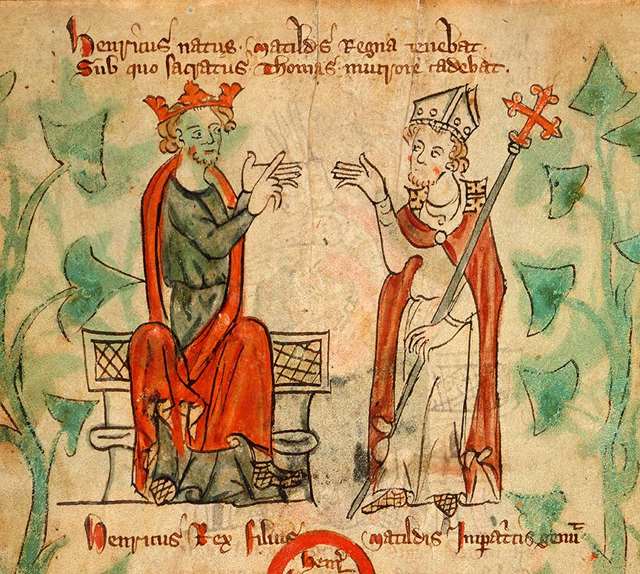 Henricus natus Matildis Regna tenebat.
Sub quo sacratus Thomas mucrone cadebat.
Henricus Rex filius Matildis Imp
Henr